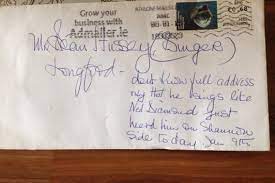 Grow your
business with
Admailer.ie
Mr Sean Hussey (Singer)
Longford.
dont know full address
only that he sings like
Neil Diamond Just
heard him on Shannon
Side today Jan 9th